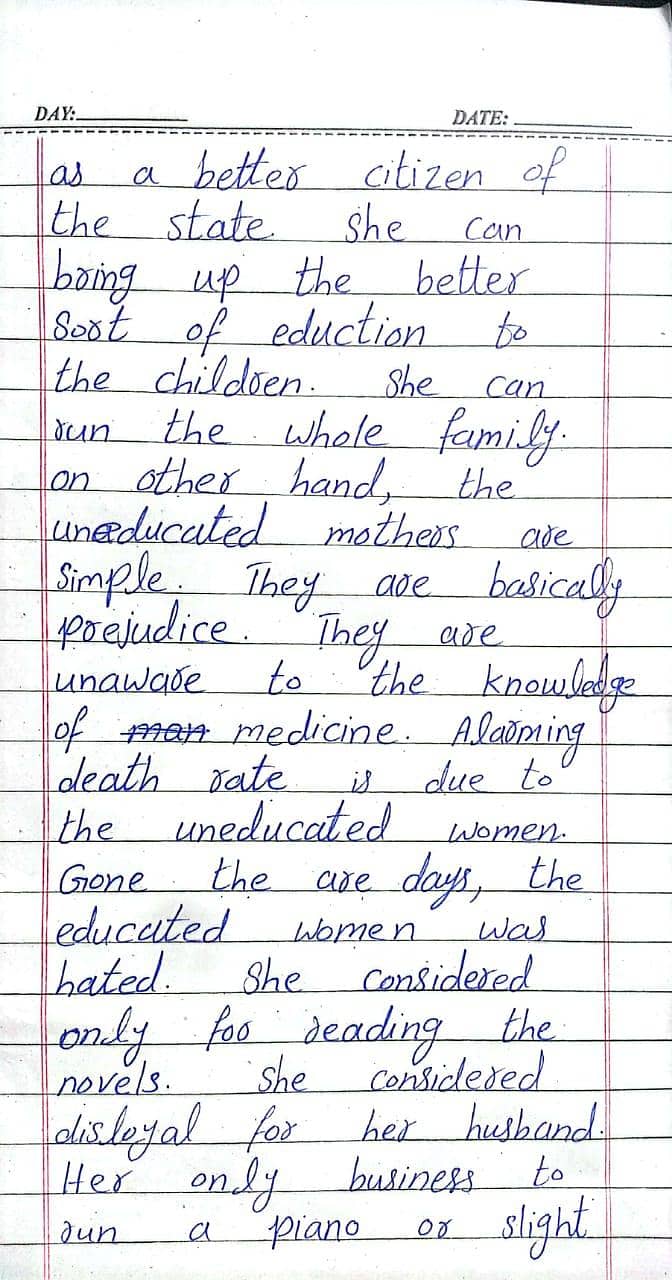 DAY:
DATE:
as a better citizen of
the state. She can
bring up the better
Sort of eduction to
the children. She can
run the whole family.
on other hand, the
uneducated mothers are
Simple. They are basically
prejudice. They are
unaware to the knowledge
of man medicine. Alarming
death rate is due to
the uneducated women.
Gone the are days, the
educated women was
hated. She considered
only for reading the
novels. She considered
disloyal for her husband.
Her only business to
run a piano or slight